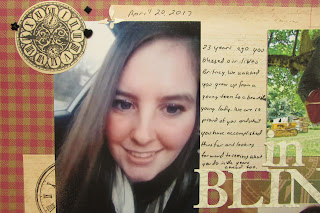 April 20, 2017
23 years ago you
blessed our lives
Britney. We watched
you grow up from a
young teen to a beautiful
young lady. We are so
proud of you and what
you have accomplished
this far and looking
forward to seeing what
your
in
BLIN